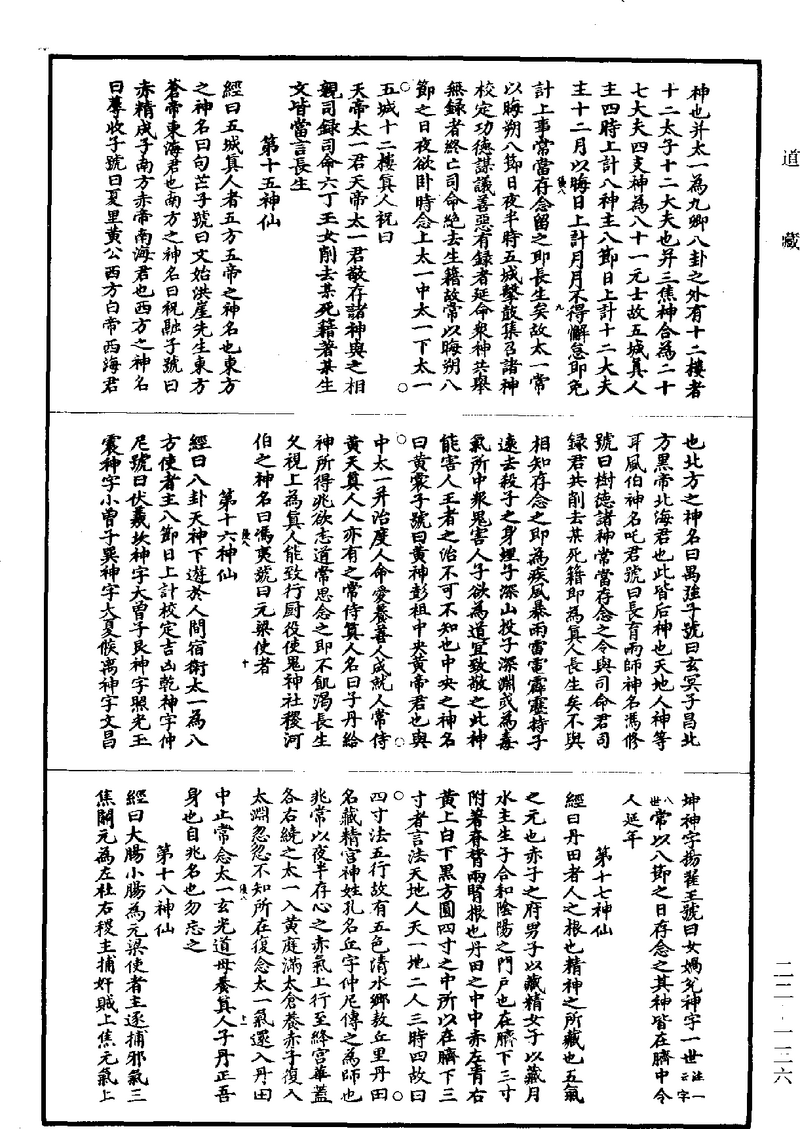 道藏
神也并太一為九卿八卦之外有十二樓者
十二太子十二大夫也并三焦神合為二十
七大夫四支神為八十一元士故五城真人
主四時上計八神主八節日上計十二大夫
主十二月以晦日上計月月不得懈怠即免
計上事常當存念留之即長生矣故太一常
以晦朔八節日夜半時五城擊鼓集召諸神
校定功德謀議善惡有錄者延命眾神共舉
無錄者終亡司命絕去生籍故常以晦朔八
節之日夜欲卧時念上太一中太一下太一
五城十二樓真人祝曰
天帝太一君天帝太一君敬存諸神與之相
親司錄司命六丁玉女削去某死籍著某生
文皆當言長生
第十五神仙
經曰五城真人者五方五帝之神名也東方
之神名曰句芒子號曰文始洪崖先生東方
蒼帝東海君也南方之神名曰祝融子號曰
赤精成子南方赤帝南海君也西方之神名
曰蓐收子號曰夏里黃公西方白帝西海君
也北方之神名曰禺強子號曰玄冥子昌北
方黑帝北海君也此皆后神也天地人神等
耳風伯神名吒君號曰長育雨師神名馮修
號曰樹德諸神常當存念之令與司命君司
錄君共削去某死籍即為真人長生矣不與
相知存念之即為疾風暴雨雷電霹靂持子
遠去殺子之身埋子深山投子深淵或為毒
氣所中眾鬼害人子欲為道宜致敬之此神
能害人王者之治不可不知也中央之神名
曰黃裳子號曰黃神彭祖中央黃帝君也與
中太一并治度人命愛養善人成就人常侍
黃天真人人亦有之常侍真人名曰子丹給
神所得兆欲志道常思念之即不飢渴長生
久視上為真人能致行厨役使鬼神社稷河
伯之神名曰馮夷號曰元梁使者
第十六神仙
經曰八卦天神下遊於人間宿衛太一為八
方使者主八節日上計校定吉凶乾神字仲
尼號曰伏羲坎神字大曾子艮神字照光玉
震神字小曾子巽神字大夏候离神字文昌
坤神字揚翟王號曰女媧兌神字一世注一云字八世
常以八節之日存念之其神皆在臍中令
人延年
第十七神仙
經曰丹田者人之根也精神之所藏也五氣
之元也赤子之府男子以藏精女子以藏月
水主生子合和陰陽之門戶也在臍下三寸
附著脊膂兩腎根也丹田之中中赤左青右
黃上白下黑方圓四寸之中所以在臍下三
寸者言法天地人天一地二人三時四故曰
四寸法五行故有五色清水鄉敖丘里丹田
名藏精宮神姓孔名丘字仲尼傳之為師也
兆常以夜半存心之赤氣上行至絳宮華蓋
各右繞之太一入黃庭滿太倉養赤子復入
太淵忽忽不知所在復念太一氣還入丹田
中止常念太一玄光道母養真人子丹正吾
身也自兆名也勿忘之
第十八神仙
經曰大腸小腸為元梁使者主逐捕邪氣三
焦關元為左社右稷主捕奸賊上焦元氣上
二二·一三六